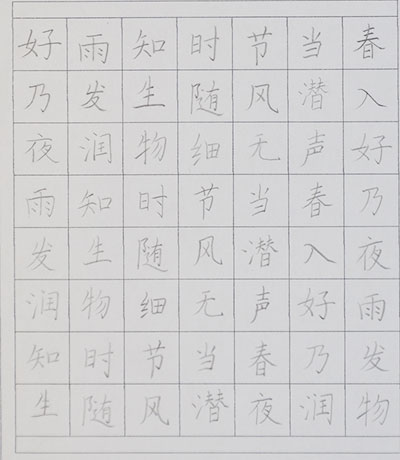 好雨知时节当春
乃发生随风潜入
夜润物细无声好
雨知时节当春乃
发生随风潜入夜
润物细无声好雨
知时节当春乃发
生随风潜夜润物